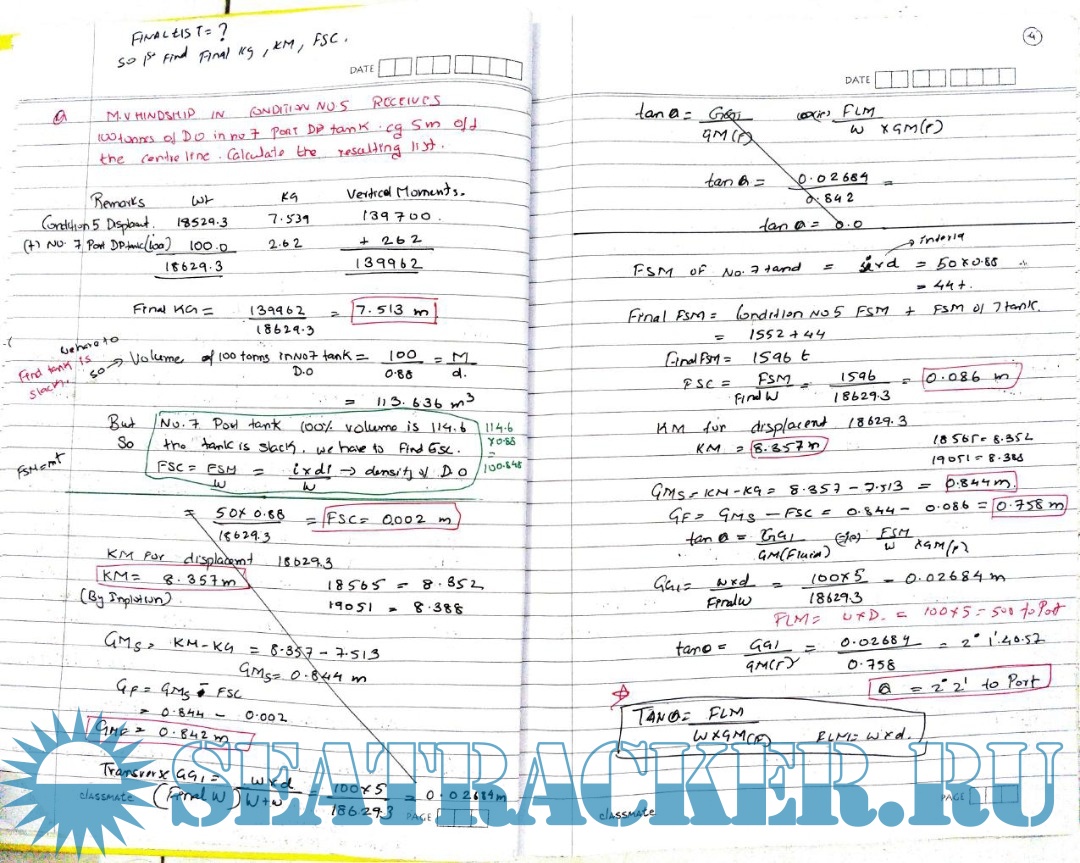 FINAL LIST = ?
SO 1st Find Final KG, KM, FSC.
DATE
Q M.V HINDSHIP IN CONDITION NO 5 RECEIVES
100 tonns of DO in no 7 Port DP tank. cg 5m off
the centre line. Calculate the resulting list.
Remarks Wt KG Vertical Moments.
Condition 5 Displacmt. 18529.3 7.539 139700.
(+) NO. 7 Port DP tank (100) 100.0 2.62 + 262
18629.3 139962
Final KG = 139962 / 18629.3 = 7.513 m
we have to
Find tank is
slack.
so → Volume of 100 tonns in No 7 tank = 100 / 0.88 = M / d.
D.O
= 113.636 m³
But No. 7 Port tank 100% volume is 114.6
So the tank is slack, we have to find FSC.
FSC = FSM / W = i x di / W → density of D O
114.6
x0.88
=
100.848
FSM = mt
= 50 x 0.88 / 18629.3 = FSC = 0.002 m
KM for displacemt 18629.3
KM = 8.357m
(By Inplotion)
18565 = 8.352
19051 = 8.388
GMs = KM - KG = 8.357 - 7.513
GMs = 0.844 m
GF = GMs - FSC
= 0.844 - 0.002
GMF = 0.842 m
Transverse GG1 = w x d / (Final W) W+w = 100 x 5 / 18629.3 = 0.02684 m
classmate
PAGE
4
DATE
tan θ = GG1 / GM(F) FLM / W x GM(F)
tan θ = 0.02684 / 0.842 =
tan θ = 0.0
→ Intertia
FSM OF No. 7 tand = i x d = 50 x 0.88
= 44 t.
Final FSM = Condition NO 5 FSM + FSM of 7 tank.
= 1552 + 44
Final FSM = 1596 t
FSC = FSM / Final W = 1596 / 18629.3 = 0.086 m
KM for displacent 18629.3
KM = 8.357m
18565 = 8.352
19051 = 8.388
GMs = KM - KG = 8.357 - 7.513 = 0.844 m.
GF = GMs - FSC = 0.844 - 0.086 = 0.758 m
tan θ = GG1 / GM(Fluid) (or) FSM / W x GM(F)
GG1 = w x d / Final W = 100 x 5 / 18629.3 = 0.02684 m
FLM = w x D. = 100 x 5 = 500 to Port
tan θ = GG1 / GM(F) = 0.02684 / 0.758 = 2° 1'.40.57
θ = 2° 2' to Port
TAN θ = FLM / W x GM(F) FLM = w x d.
classmate
PAGE
SEATRACKER.RU